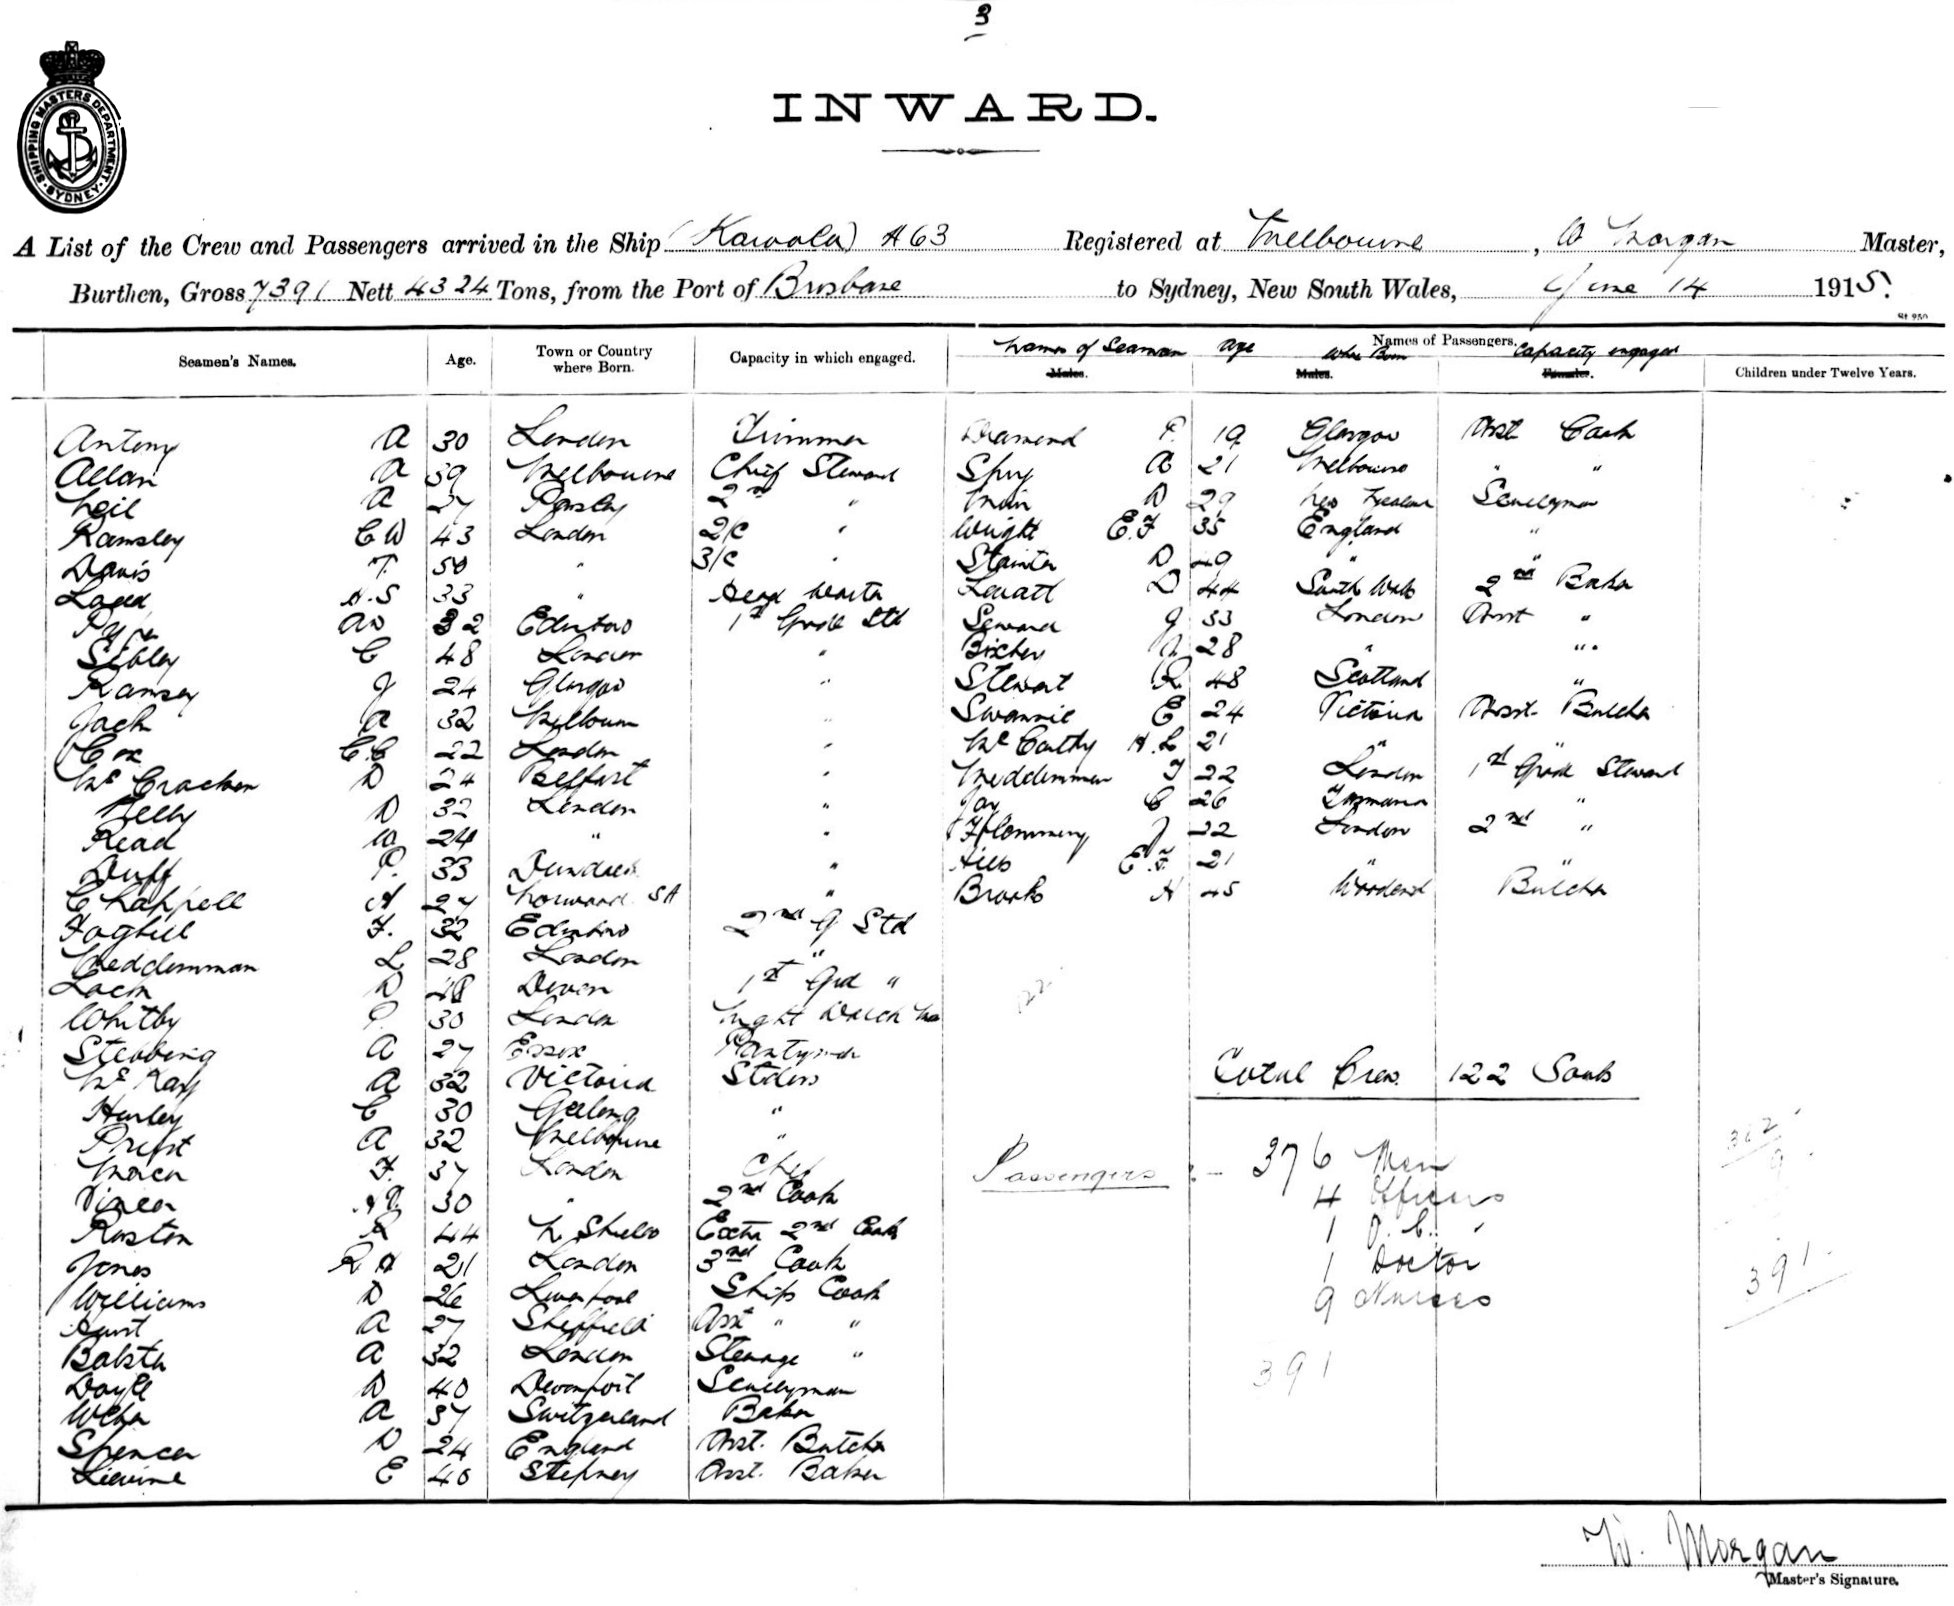 3
INWARD.
SHIPPING MASTERS DEPARTMENT. SYDNEY
A List of the Crew and Passengers arrived in the Ship (Karoola) A63 Registered at Melbourne, W Morgan Master,
Burthen, Gross 7391 Nett 4324 Tons, from the Port of Brisbane to Sydney, New South Wales, June 14 1915.
Names of Passengers.
Seamen's Names. Age. Town or Country where Born. Capacity in which engaged. Names of Seaman Age Where Born Capacity engaged Children under Twelve Years.
Males. Males. Females.
Antony A 30 London Trimmer
Allan A 39 Melbourne Chief Steward
Neil A 27 Paisley 2nd "
Ramsley C W 43 London 2/C "
Davis T. 50 " 3/C "
H.S 33 " Head Waiter
Pyper AW 32 Edinboro 1st Grade Std
Sibley C 48 London "
Ramsey J 24 Glasgow "
Jack A 32 Melbourn "
Cox C.C 22 London "
Mc Cracken D 24 Belfast "
Kelly D 32 London "
Read W 24 " "
Duff P. 33 Dundee "
Chappell A 27 Norwood SA "
Foghill F. 32 Edinboro 2nd G Std
Meddemman L 28 London "
D Devon 1st Grd "
Whitby P. 30 London Night Watch Man
Stebbing A 27 Essex Pantryman
Mc Kay A 32 Victoria Stders
Hurley C 30 Geelong "
Priest A 32 Melbourne "
F. 37 London Chef
30 " 2nd Cook
Roston R 44 N Shields Extra 2nd Cook
Jones R H 21 London 3rd Cook
Williams D 26 Liverpool Ships Cook
Hurst A 27 Sheffield Asst " "
A 32 London Steerage "
Doyle D 40 Devonport Sculleyman
Weber A 37 Switzerland Baker
Spencer D 24 England Asst. Butcher
E 40 Stepney Asst. Baker
Diamond P. 19 Glasgow Asst Cook
Spry A 21 Melbourne " "
Main D 29 New Zealand Sculleyman
Wright E.F 35 England "
Stainton D 49 " "
D 44 South Wales 2nd Baker
Seward J 33 London Asst "
28 " " "
Stewart R 48 Scotland "
Swannie E 24 Victoria Asst. Butcher
Mc Carthy H.L 21 " "
Meddemman T 22 London 1st Grade Steward
Jay C 26 Tasmania "
Flommery J 22 London 2nd "
E.F. 21 " "
Brooks H 45 Woodend Butcher
Total Crew. 122 Souls
Passengers :- 376 Men
4 Officers
1 O.C. "
1 Doctor
9 Nurses
391
391
W. Morgan
Master's Signature.